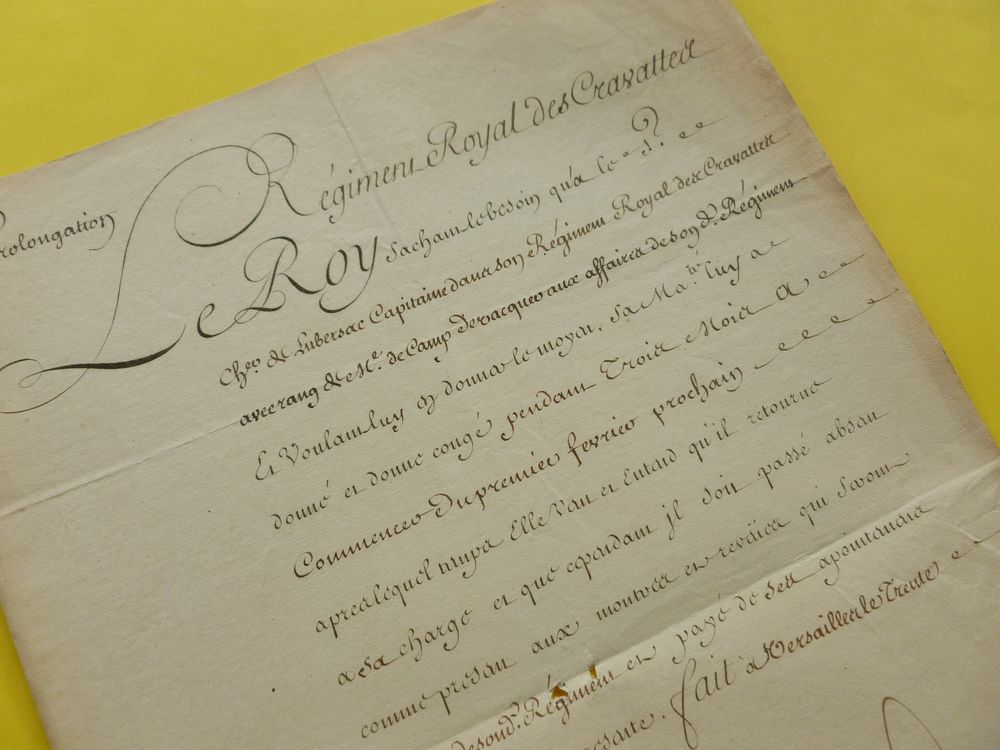 Régiment Royal des Cravattes
Prolongation
Le Roy sachant le besoin qu'a le S.r
Cher. de Lubersac Capitaine dans son Régiment Royal des Cravattes
avec rang de Me. de Camp de vacquer aux affaires de son d. Régiment
Et Voulant luy en donner le moyen, Sa Ma.té luy a
donné et donne congé pendant Trois Mois A
Commencer du premier fevrier prochain
apres lequel temps Elle Veut et Entend qu'il retourne
a sa charge et que cependant jl soit passé absent
comme present aux montres et reveües qui seront
de son d. Régiment et payé de ses apointements
presente. fait à Versailles le Trente